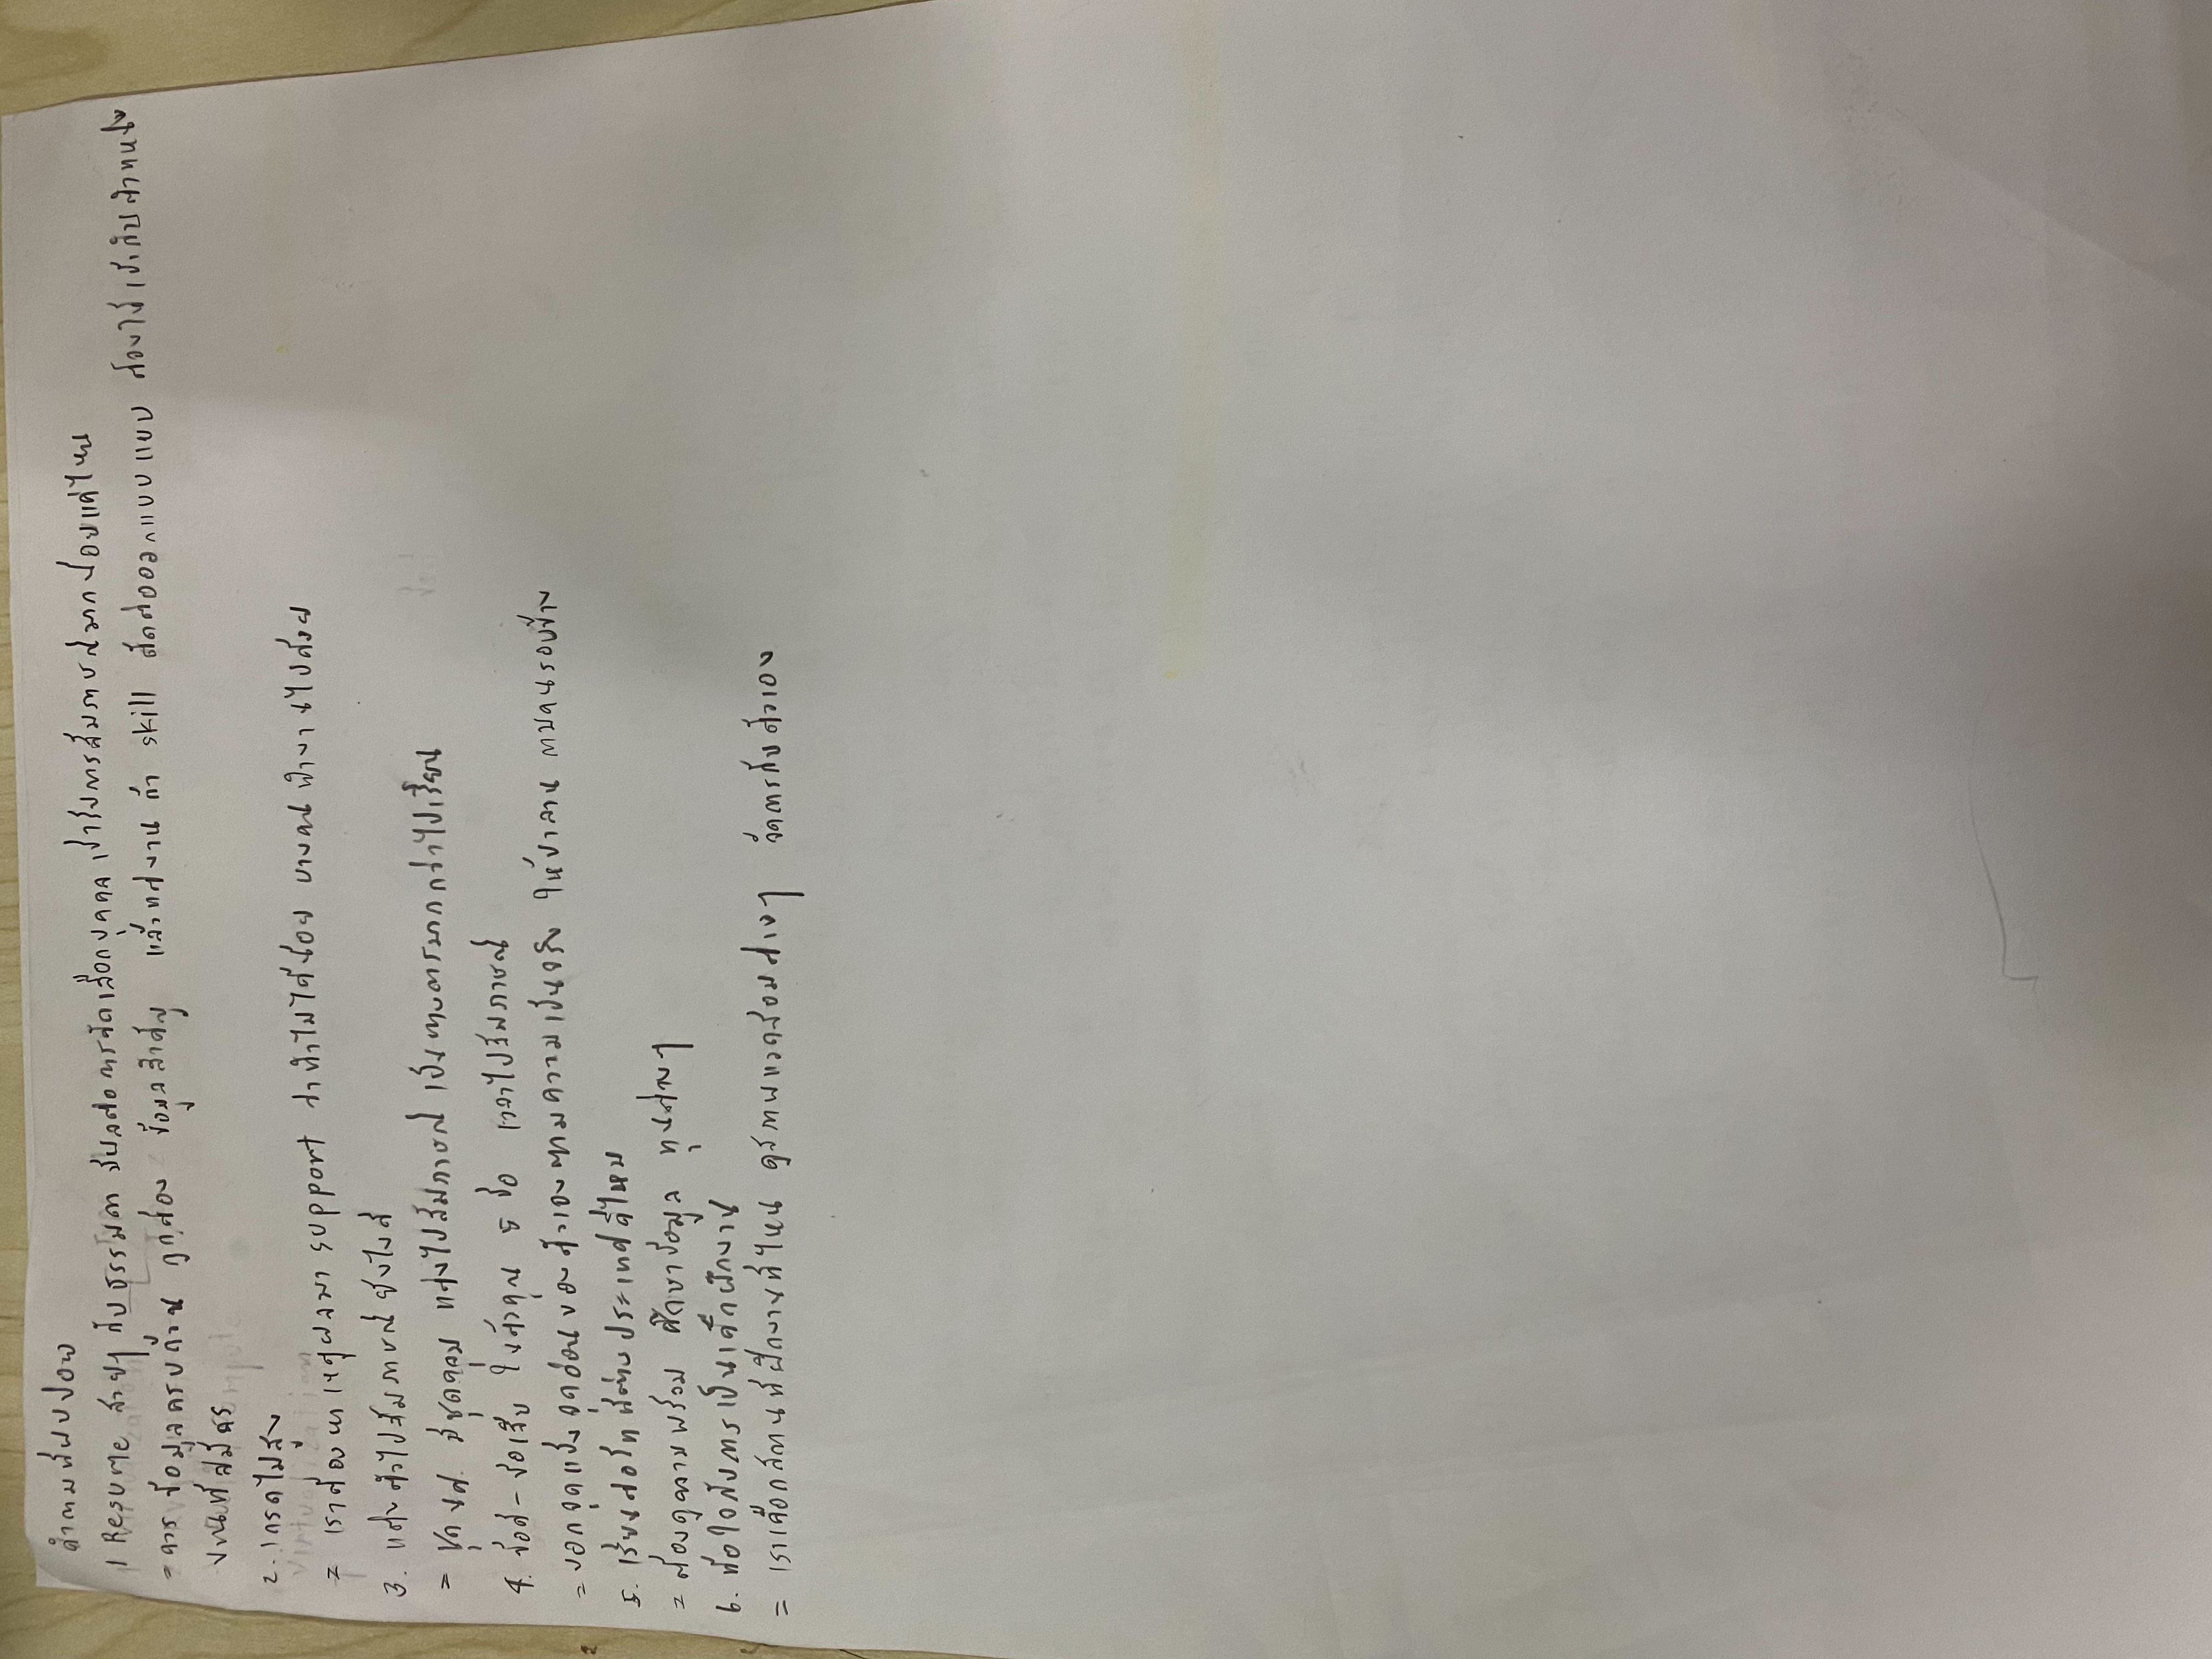 คำถามที่พบบ่อย
1 Resume สวยๆ กับ ธรรมดา มีผลต่อการคัดเลือกบุคคล เข้ารับการสัมภาษณ์มากน้อยแค่ไหน
= ควร ข้อมูลครบถ้วน ถูกต้อง ข้อมูลสำคัญ แล้วแต่งาน ถ้า skill ตัดต่อออกแบบแบบ ต้องให้เข้ากับตำแหน่ง
งานที่สมัคร
2. เกรดไม่สูง
= เราต้องหาเหตุผลมา support ว่าทำไมได้น้อย บางคนทำงานไปด้วย
3. แต่งตัวไปสัมภาษณ์ยังไงดี
= ชุด นศ. มีชุดคลุม แต่งไปสัมภาษณ์ เป็นทางการมากกว่าไปเรียน
4. ข้อดี - ข้อเสีย ในตัวคุณ 5 ข้อ เวลาไปสัมภาษณ์
= บอกจุดแข็ง จุดอ่อนของตัวเองตามความเป็นจริง ให้ ถามคนรอบข้าง
5. เรียนต่อโท ที่ต่างประเทศดีไหม
= ต้องดูความพร้อม ศึกษาข้อมูล ทุนต่างๆ
6. ท้อใจกับการเป็นเด็กฝึกงาน
= เราเลือกสถานที่ฝึกงานที่ไหน ดูสภาพแวดล้อมต่างๆ จัดการกับตัวเอง